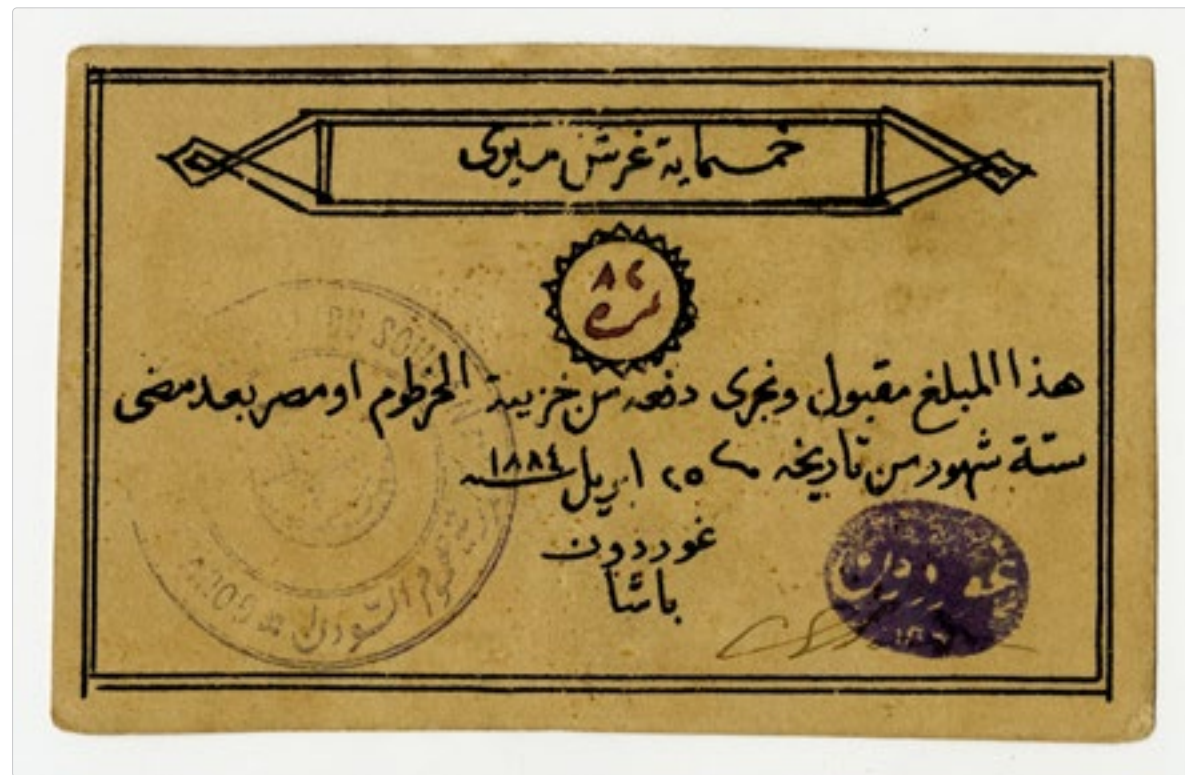 خمسماية غرش ميرى
٨٢
هذا المبلغ مقبول ويجرى دفعه من خزينة الخرطوم او مصر بعد مضى
ستة شهور من تاريخه ٢٥ ابريل سنة ١٨٨٤
غوردون
باشا
DU SOU
عموم السودان
GOUV
غوردون